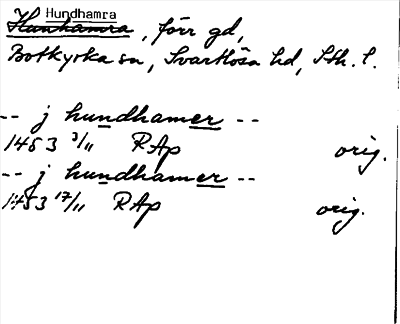 Hundhamra
Hunhamra, förr gd,
Botkyrka sn, Svartlösa hd, Sth. l.
-- j hundhamer --
1453 3/11 RAp orig.
-- j hundhamer --
1453 17/11 RAp orig.